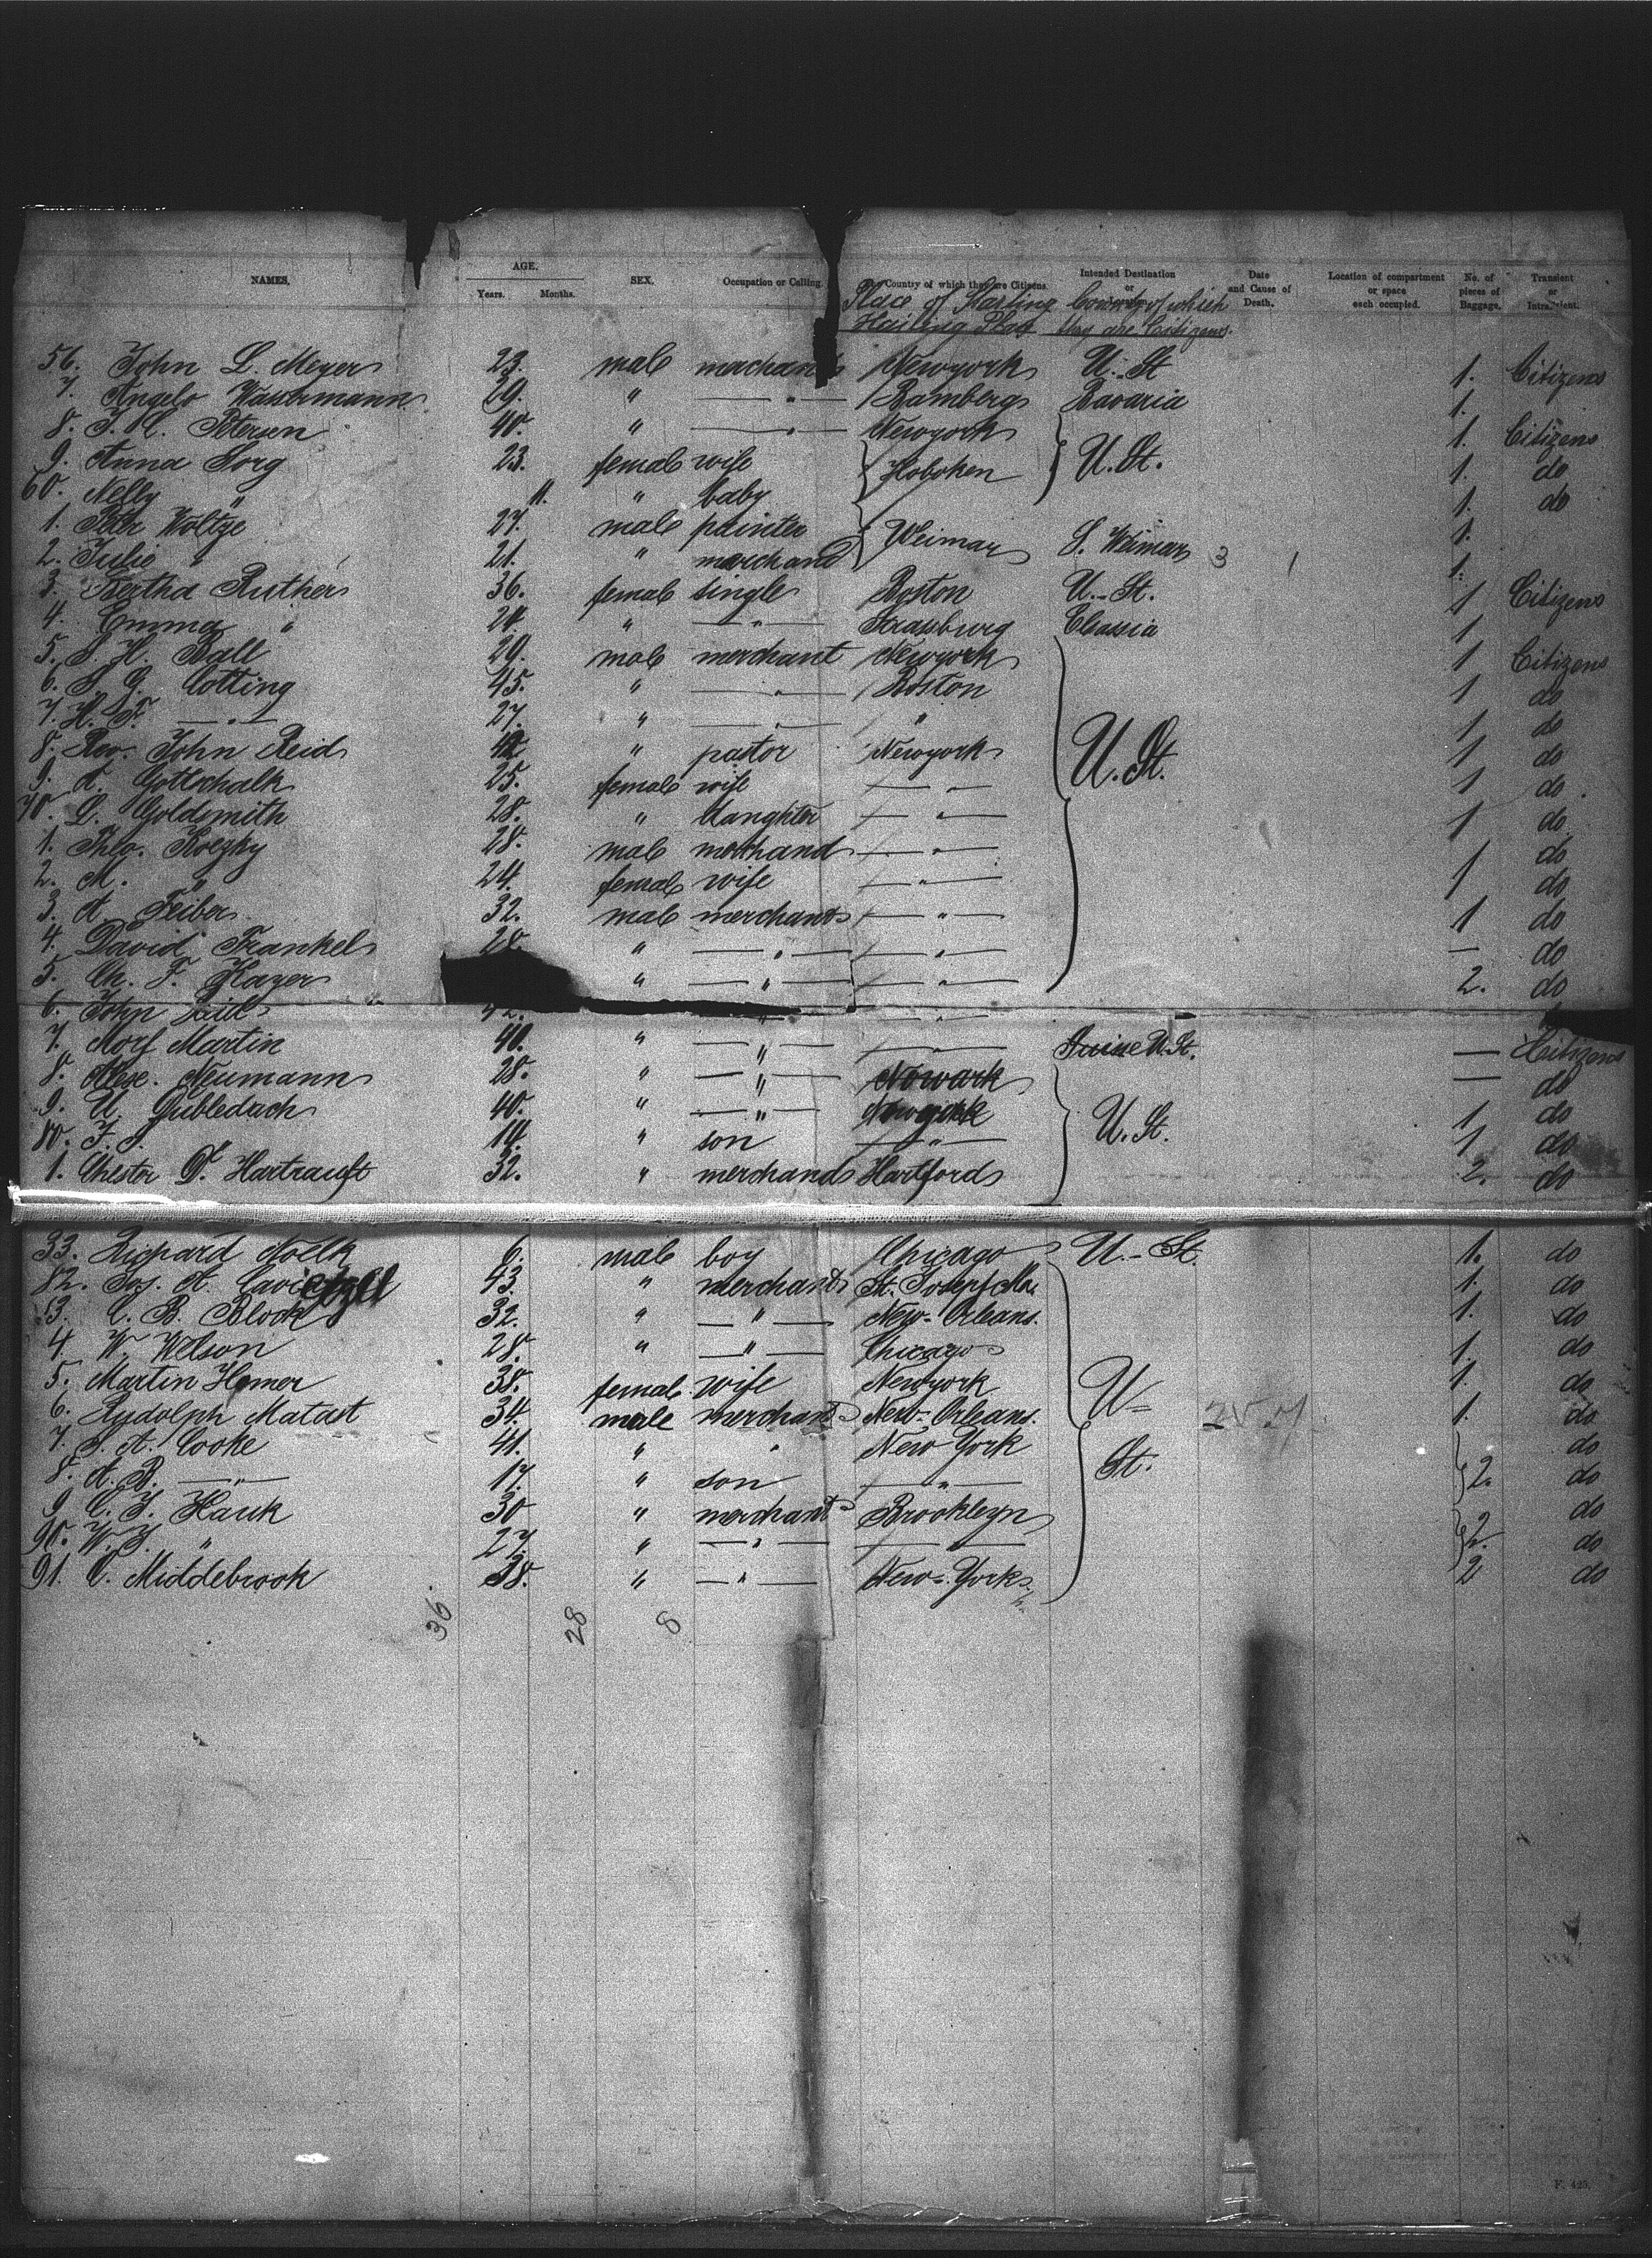 NAMES. AGE. Years. Months. SEX. Occupation or Calling. Country of which they are Citizens. Intended Destination or Date and Cause of Death. Location of compartment or space each occupied. No. of pieces of Baggage. Transient or
Place of Starting Country of which
Hailing Place they are Citizens.
56. John L. Meyer 23. male merchant Newyork U.-St 1. Citizens
7. Angelo Wassermann 29. " —"— Bamberg Bavaria 1.
8. Petersen 40. " —"— Newyork 1. Citizens
9. Anna Sorg 23. female wife Hoboken U.St. 1. do
60. Nelly " 11. " baby 1. do
1. Woltze 27. male painter Weimar S. Weimar 3 1 1.
2. Julie " 21. " merchand 1.
3. Bertha Ruther 36. female single Boston U.-St. 1 Citizens
4. Emma " 24. " —"— Strassburg 1
5. S. H. Ball 29. male merchant Newyork 1 Citizens
6. S. G. Cotting 45. " —"— Boston 1 do
7. H. F. —"— 27. " —"— " 1 do
8. Rev. John Reid " pastor Newyork U.St. 1 do
9. A. Gottschalk 25. female wife —"— 1 do.
70. L. Goldsmith 28. " daughter —"— 1 do
1. Theo. Roezky 28. male merchand —"— do
2. M. " 24. female wife —"— 1 do
3. A. Feiber 32. male merchant —"— 1 do
4. David Frankel 28. " —"— —"— — do
5. Ch. F. Kayer " —"— —"— 2. do
6. John " "
7. Morf Martin 40. " —"— —"— U.St. — Citizens
8. Alex. Neumann 28. " —"— Newark — do
9. U. 40. " —"— Newyork U.St. 1 do
80. " 14. " son —"— 1 do
1. Chester D. Hartranft 32. " merchand Hartford 2. do
33. Richard Noelk 6. male boy Chicago U.-St. 1. do
82. Jos. A. 43. " merchant St. Joseph Mo. 1. do
3. C. B. Block 32. " —"— New-Orleans. 1. do
4. W. Welson 28. " —"— Chicago 1. do
5. Martin Homer 38. female wife Newyork U- 1. do
6. Rudolph Matast 34. male merchant New-Orleans. 1. do
7. S. A. Cooke 41. " " New York do
8. A. B. —"— 17. " son —"— St. 2. do
9 C. J. Hauk 30 " merchant Brookleyn 2 do
90. W. J. " 27. " —"— —"— 2. do
91. C. Middebrook 38. " —"— New-York 2 do
36. 28 8
F. 425.